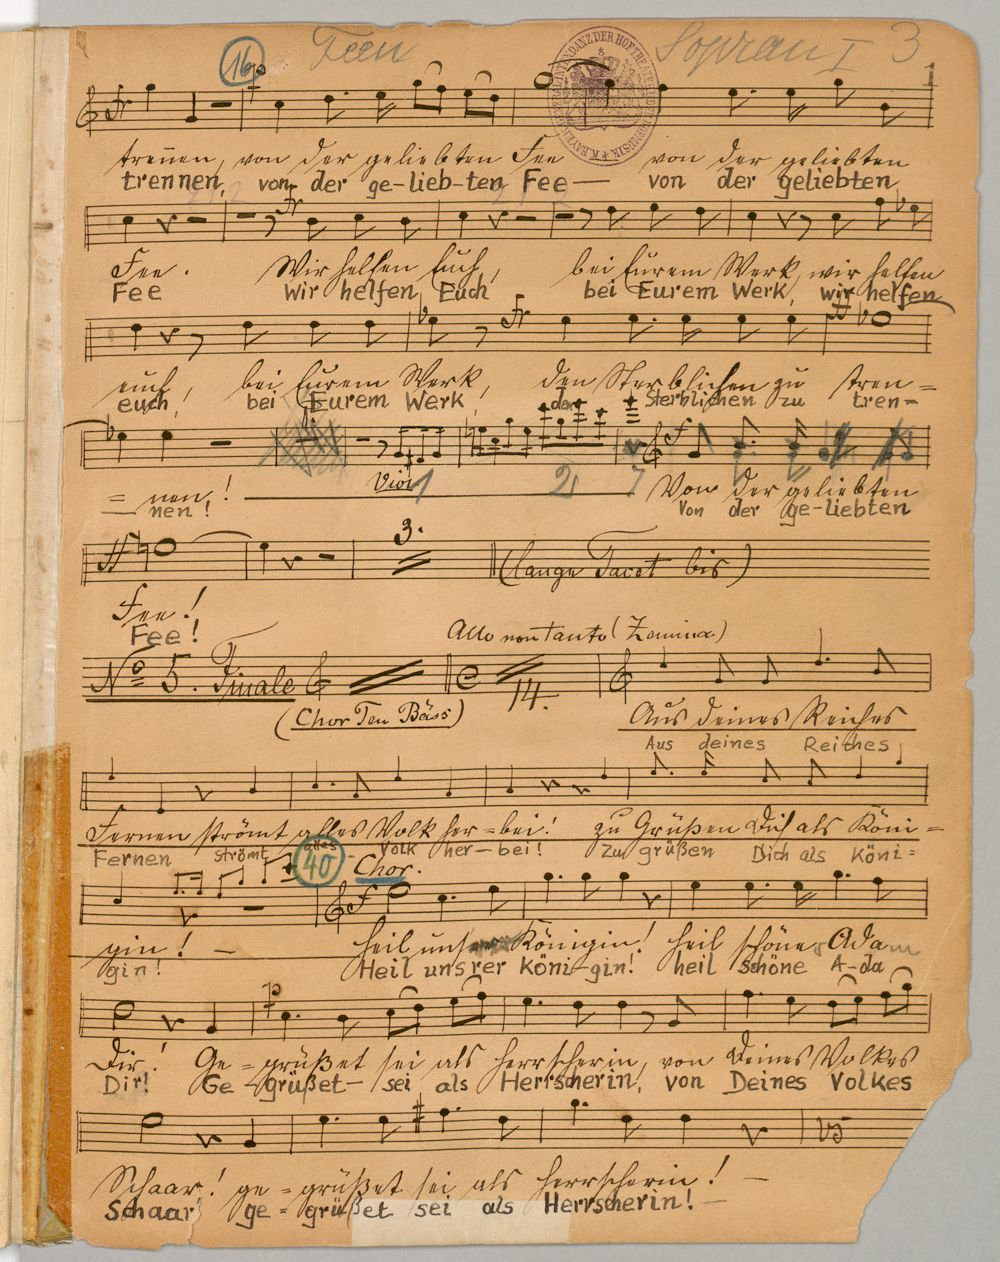 16 Feen Sopran I 3
1
trennen, von der geliebten Fee von der geliebten
trennen, von der ge-lieb-ten Fee— von der geliebten
Fee. Wir helfen Euch, bei Eurem Werk, wir helfen
Fee Wir helfen Euch bei Eurem Werk, wir helfen
euch, bei Eurem Werk, den Sterblichen zu tren=
euch, bei Eurem Werk, den Sterblichen zu tren=
Viol 1 2
= nen! Von der geliebten
= nen! Von der ge-liebten
3.
(lange Tacet bis)
Fee!
Fee!
Allo non tanto (Zemina)
No 5. Finale 14.
(Chor Ten Bäss)
Aus deines Reiches
Aus deines Reiches
Fernen strömt alles Volk her=bei! zu Grüßen Dich als Köni=
Fernen strömt alles Volk her-bei! zu grüßen Dich als Köni=
40 Chor.
gin! — heil unsrer Königin! heil schöne Ada
gin! Heil unsrer Köni-gin! heil schöne A-da
Dir! Ge=grüßet sei als Herrscherin, von Deines Volkes
Dir! Ge-grüßet— sei als Herrscherin, von Deines Volkes
15
Schaar! ge=grüßet sei als Herrscherin! —
Schaar! ge=grüßet sei als Herrscherin! —